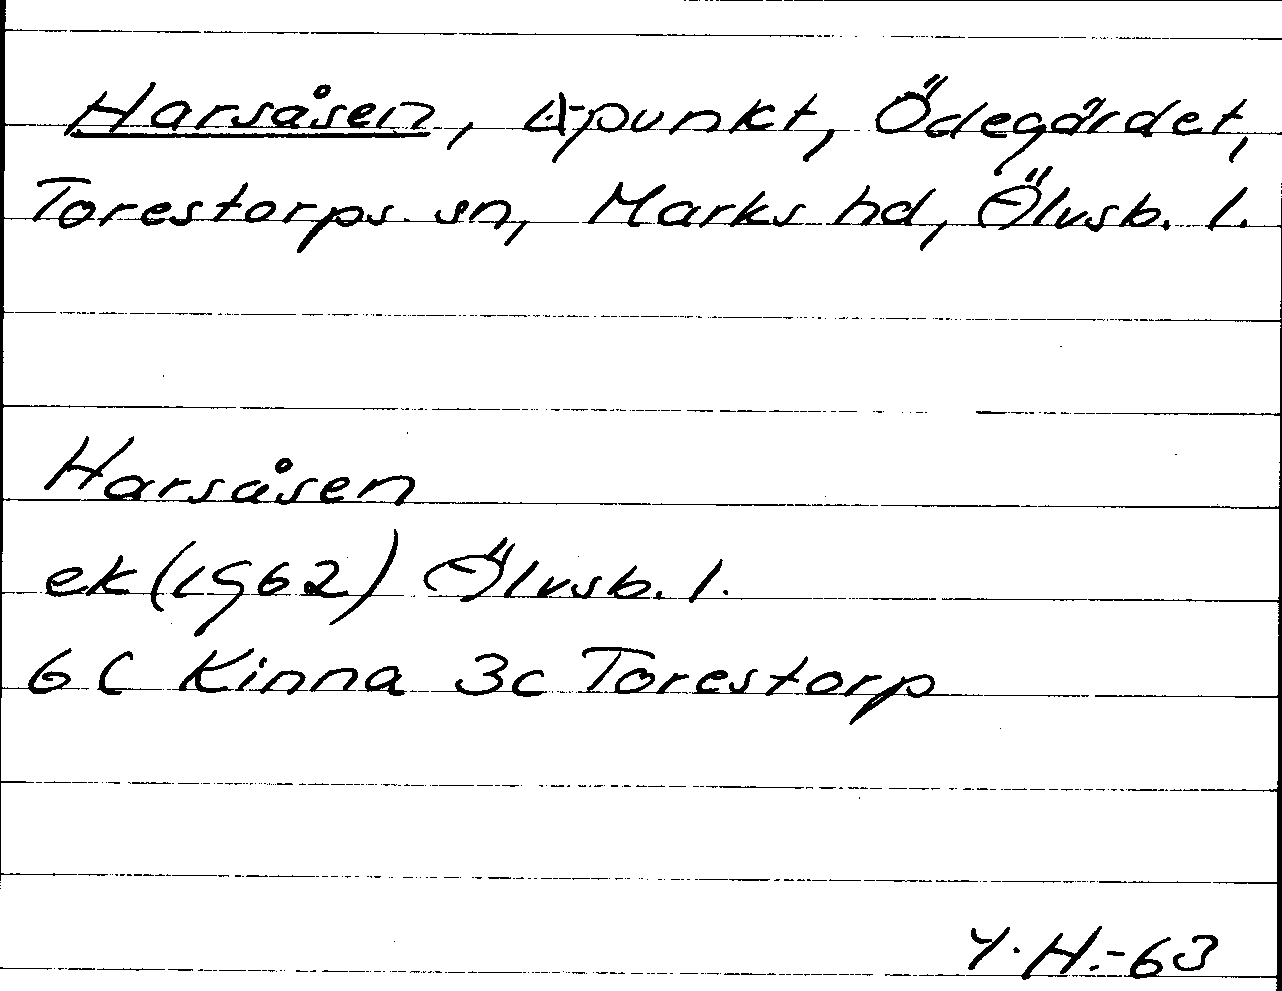 Harsåsen, Δpunkt, Ödegärdet,
Torestorps sn, Marks hd, Älvsb. l.
Harsåsen
ek(1962) Älvsb. l.
6 C Kinna 3c Torestorp
Y.H.-63